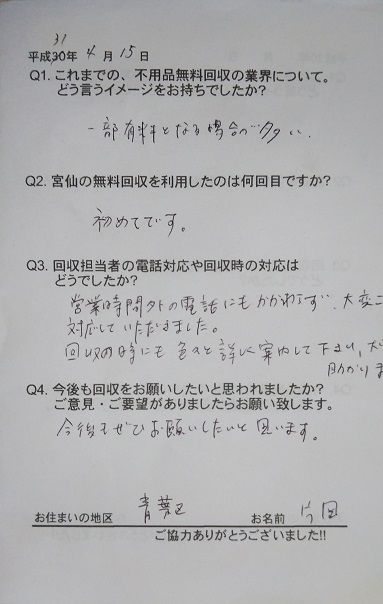 31
平成30年 4月 15日
Q1. これまでの、不用品無料回収の業界について。
どう言うイメージをお持ちでしたか?
一部有料となる場合が多い。
Q2. 宮仙の無料回収を利用したのは何回目ですか?
初めてです。
Q3. 回収担当者の電話対応や回収時の対応は
どうでしたか?
営業時間外の電話にもかかわらず、大変こ
対応していただきました。
回収の時にも色々と詳しく案内して下さり、大
助かりま
Q4. 今後も回収をお願いしたいと思われましたか?
ご意見・ご要望がありましたらお願い致します。
今後もぜひお願いしたいと思います。
お住まいの地区 青葉区 お名前
ご協力ありがとうございました!!